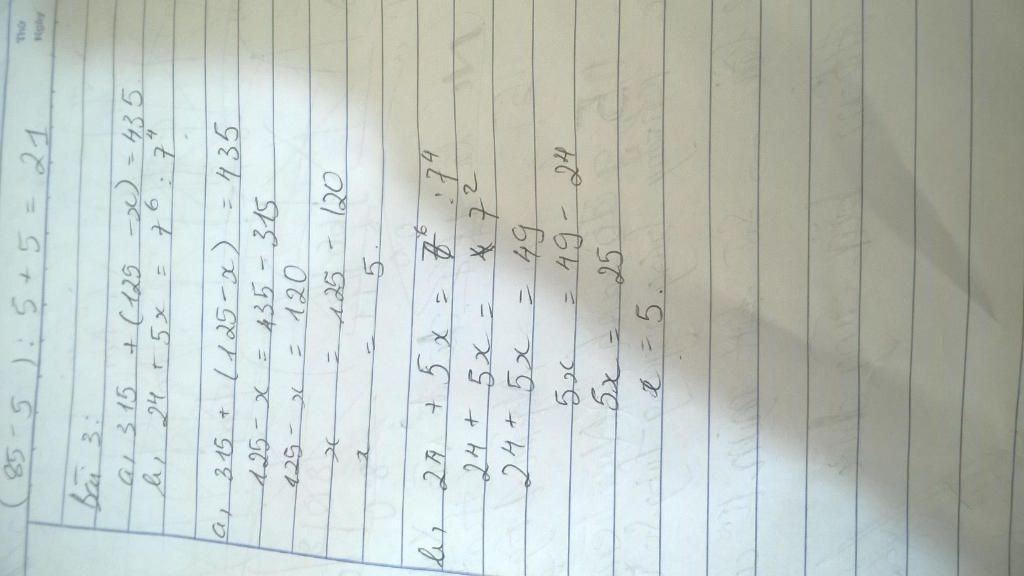 Thứ
Ngày
(85 - 5) : 5 + 5 = 21
Bài 3:
a, 315 + (125 - x) = 435.
b, 24 + 5x = 7⁶ : 7⁴
a, 315 + (125 - x) = 435
125 - x = 435 - 315
125 - x = 120
x = 125 - 120
x = 5.
b, 24 + 5x = 7⁶ : 7⁴
24 + 5x = 7²
24 + 5x = 49
5x = 49 - 24
5x = 25
x = 5.